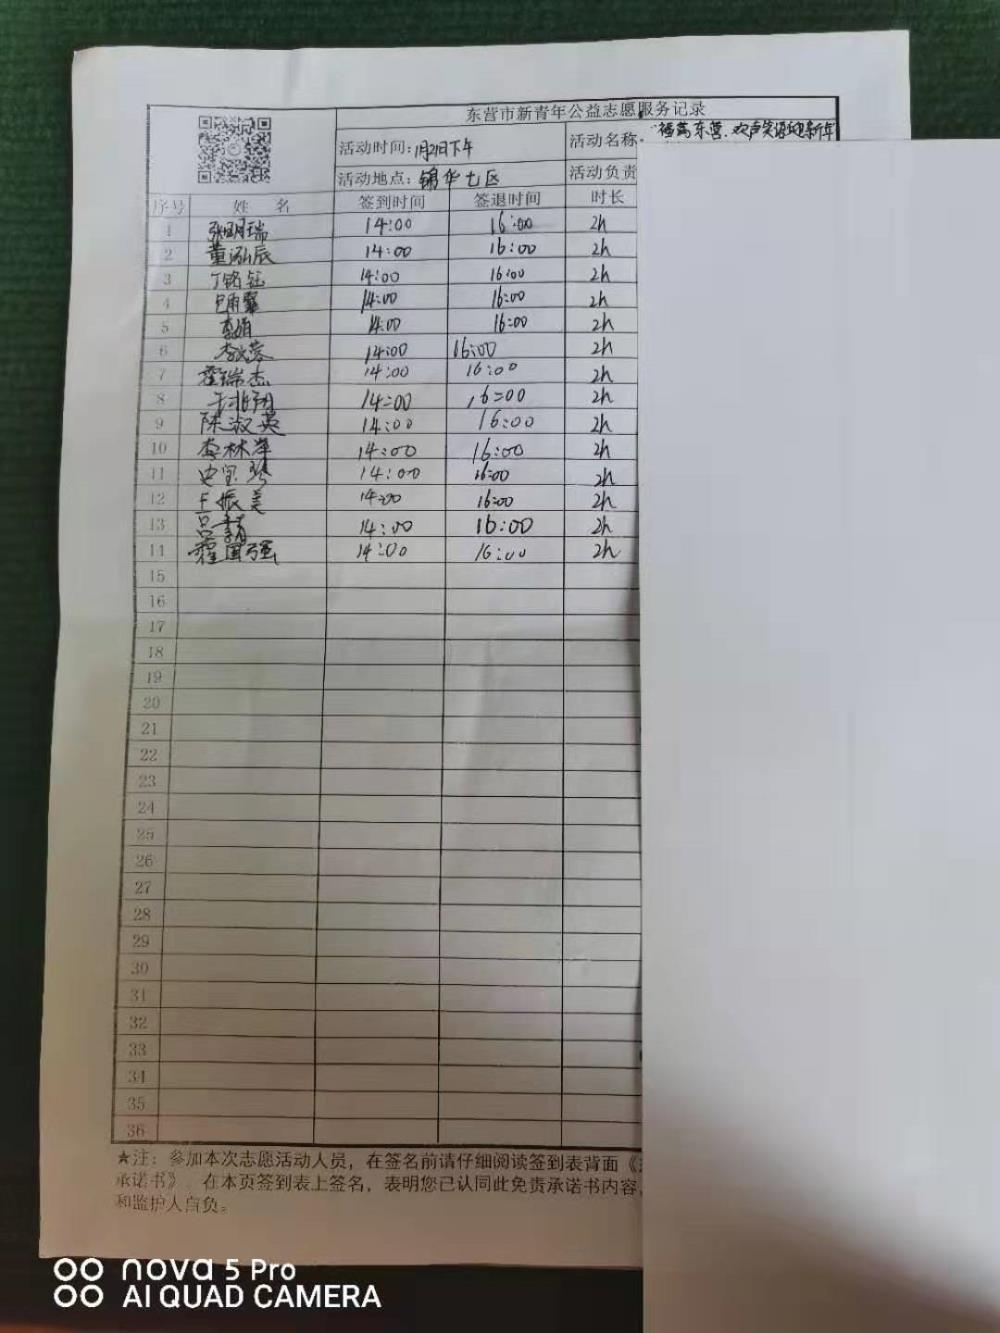 东营市新青年公益志愿服务记录
活动时间：1月21日下午 活动名称："福荔东营、欢声笑语迎新年
活动地点：锦华七区 活动负责
序号 姓 名 签到时间 签退时间 时长
1 张明瑞 14:00 16:00 2h
2 董泓辰 14:00 16:00 2h
3 丁铭钰 14:00 16:00 2h
4 14:00 16:00 2h
5 14:00 16:00 2h
6 14:00 16:00 2h
7 霍瑞杰 14:00 16:00 2h
8 14:00 16:00 2h
9 陈淑英 14:00 16:00 2h
10 李林萍 14:00 16:00 2h
11 14:00 16:00 2h
12 王振美 14:00 16:00 2h
13 14:00 16:00 2h
14 霍国强 14:00 16:00 2h
15
16
17
18
19
20
21
22
23
24
25
26
27
28
29
30
31
32
33
34
35
36
★注：参加本次志愿活动人员，在签名前请仔细阅读签到表背面《
承诺书》。在本页签到表上签名，表明您已认同此免责承诺书内容，
和监护人自负。
nova 5 Pro
AI QUAD CAMERA